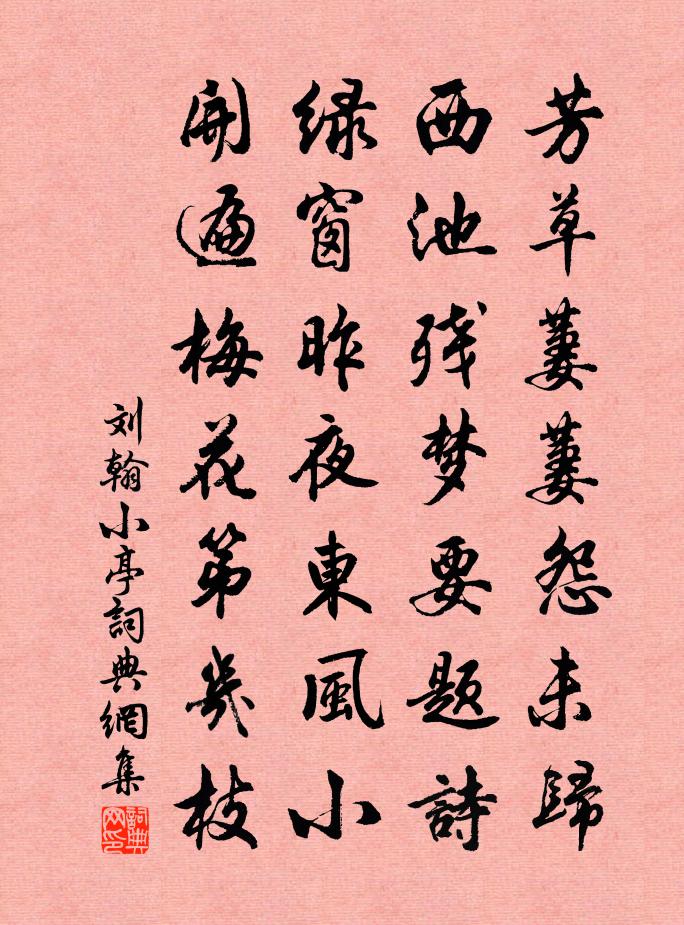 芳草萋萋怨未歸
西池残梦要题詩
绿窗昨夜東風小
開遍梅花第幾枝
刘翰小亭詞典網集
詞典网印